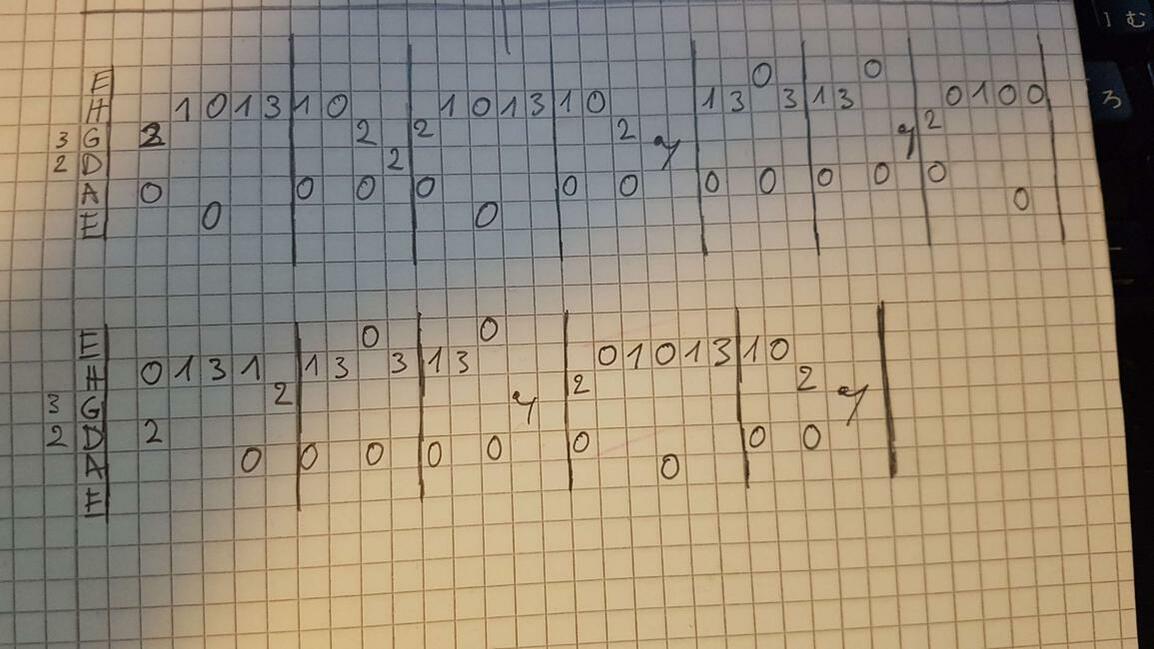 E 0 0
H 1 0 1 3 1 0 1 0 1 3 1 0 1 3 3 1 3 0 1 0 0
3 G 2 2 2 2 2
2 D 2
A 0 0 0 0 0 0 0 0 0 0 0
E 0 0 0
E 0 0
H 0 1 3 1 1 3 3 1 3 0 1 0 1 3 1 0
3 G 2 2 2
2 D 2
A 0 0 0 0 0 0 0 0
E 0
1 む
ろ